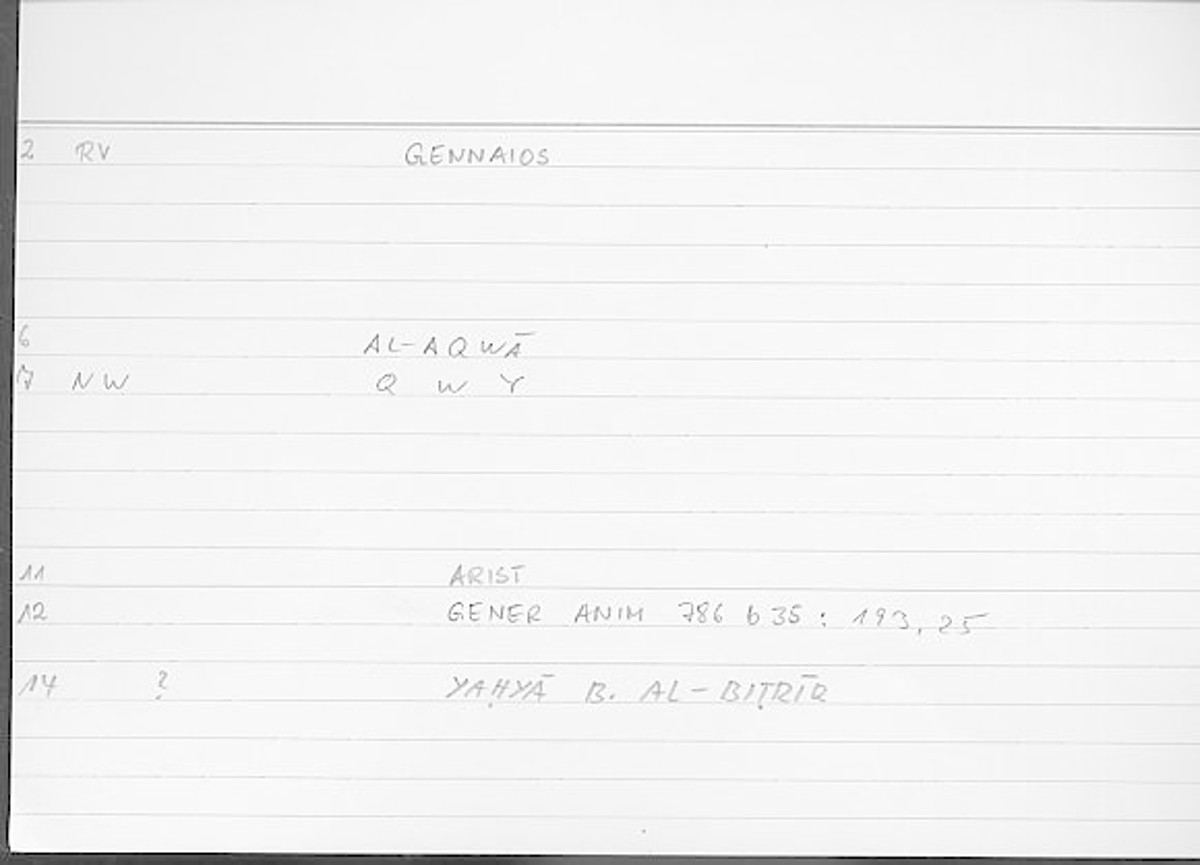 2 RV GENNAIOS
6 AL-AQWĀ
7 NW Q W Y
11 ARIST
12 GENER ANIM 786 b 35 : 193, 25
14 ? YAḤYĀ B. AL-BIṬRĪQ